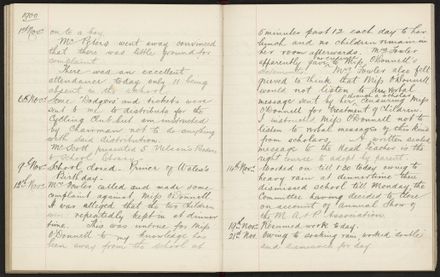 1900
1st Nov. on to a boy.
Mr Peters went away convinced
that there was little ground for
complaint.
There was an excellent
attendance today only 11 being
absent in the school.
6th Nov. Some Badges and tickets were
sent to me to distribute for the
Cycling Club but am instructed
by Chairman not to do anything
with said distribution.
Mr Scott presented 5 Nelson's Readers
to School library.
9th Nov. School closed. Prince of Wales's
Birthday.
12th Nov. Mr Fowler called and made some
complaint against Miss O'Donnell
It was alleged that the two children
were repeatedly kept in at dinner
time. This was untrue for Miss
O'Donnell to my knowledge has
been away from the school at
5 minutes past 12 each day to her
lunch and no children remain in
her room afterwards. Mr Fowler
apparently gave Miss O'Donnell's
Mr Fowler also felt
grieved to think that Miss O'Donnell
would not listen to an verbal
message sent by her, censuring Miss
O'Donnell for treatment of children.
I instructed Miss O'Donnell not to
listen to verbal messages of this kind
from scholars. A written sealed
message to the Head teacher is the
right course to adopt by parent.
14th Nov. Worked on till 12 today owing to
heavy rain and dinnertime then
dismissed school till Monday, the
Committee having decided to close
on account of Annual Show of
the M. A & P Association.
19th Nov. Resumed work today.
21st Nov. Owing to soaking rain, worked
and dismissed for day